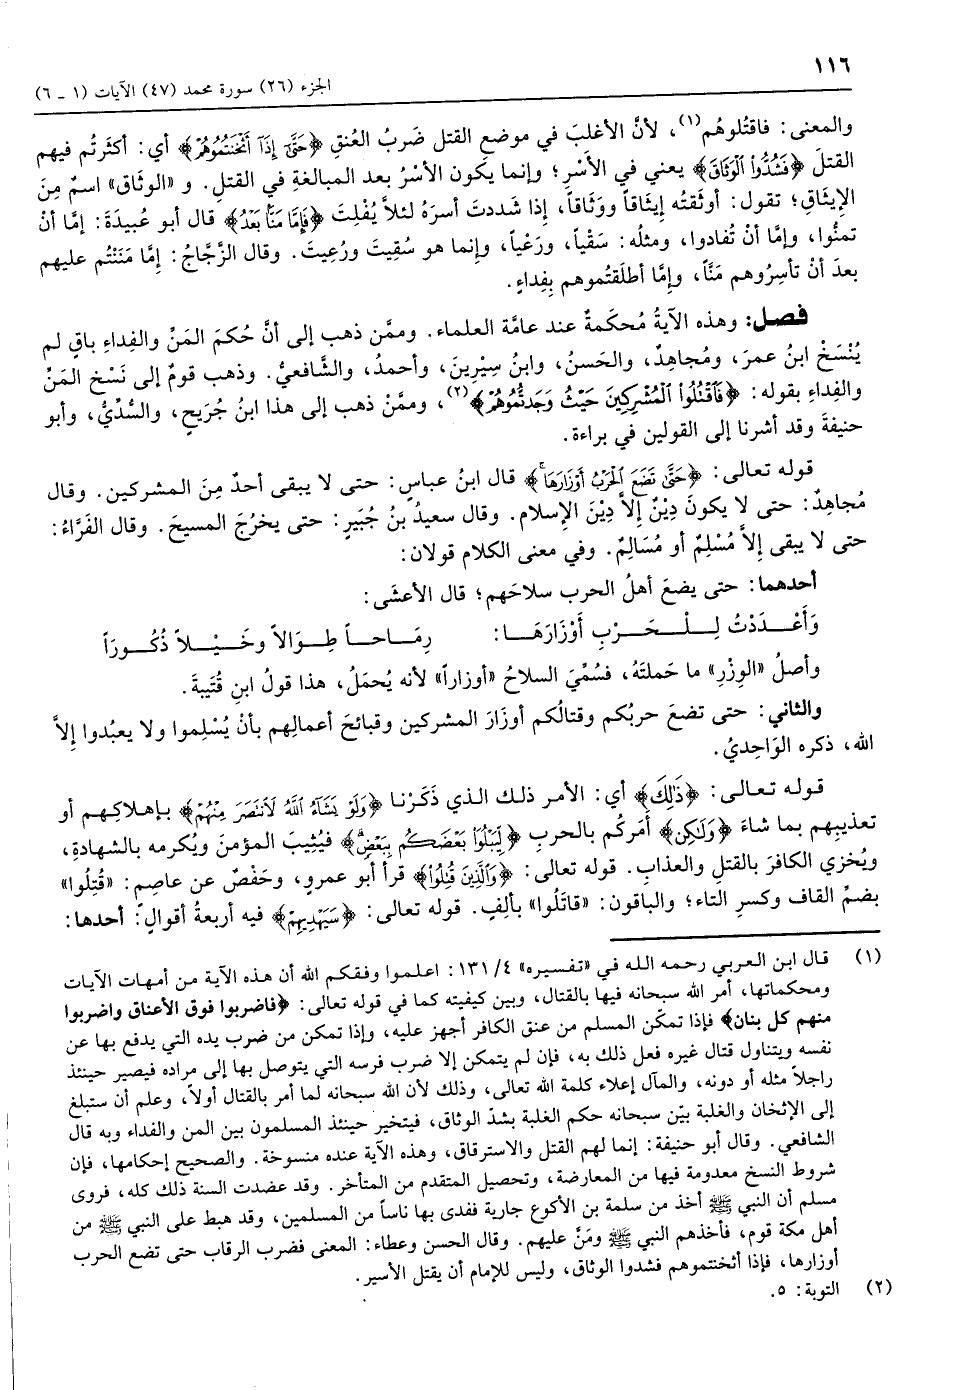 ١١٦
الجزء (٢٦) سورة محمد (٤٧) الآيات (١ ـ ٦)
والمعنى: فاقتُلوهُم(١)، لأنَّ الأغلبَ في موضع القتل ضَربُ العُنقِ ﴿حَتَّىٰ إِذَآ أَثْخَنتُمُوهُمْ﴾ أي: أكثَرتُم فيهم
القتلَ ﴿فَشُدُّوا۟ ٱلْوَثَاقَ﴾ يعني في الأَسْرِ؛ وإنما يكون الأسْرُ بعد المبالغةِ في القتلِ. و «الوثاق» اسمٌ مِنَ
الإيثاقِ؛ تقول: أوثقته إيثاقاً ووَثَاقاً، إذا شَددتَ أسرَهُ لئلاَّ يُفْلِتَ ﴿فَإِمَّا مَنًّۢا بَعْدُ﴾ قال أبو عُبيدَة: إمَّا أنْ
تمنُّوا، وإمَّا أنْ تُفادوا، ومثلُه: سَقْياً، ورَعْياً، وإنما هو سُقِيتَ ورُعِيتَ. وقال الزَّجَّاجُ: إمَّا مَنَنْتُم عليهم
بعدَ أنْ تأسِرُوهم مَنّاً، وإمَّا أطلَقتُموهم بِفِداءٍ.
فصل: وهذه الآيةُ مُحكَمةٌ عند عامَّة العلماء. وممَّن ذهب إلى أنَّ حُكمَ المَنِّ والفِداءِ باقٍ لم
يُنْسَخْ ابنُ عمرَ، ومُجاهِدٌ، والحَسنُ، وابنُ سِيْرِينَ، وأحمدُ، والشَّافعيُّ. وذهب قومٌ إلى نَسْخِ المَنِّ
والفِداءِ بقوله: ﴿فَٱقْتُلُوا۟ ٱلْمُشْرِكِينَ حَيْثُ وَجَدتُّمُوهُمْ﴾(٢)، وممَّنْ ذهب إلى هذا ابنُ جُرَيجٍ، والسُّدِّيُّ، وأبو
حنيفةَ وقد أشرنا إلى القولين في براءة.
قوله تعالى: ﴿حَتَّىٰ تَضَعَ ٱلْحَرْبُ أَوْزَارَهَا ۚ﴾ قال ابنُ عباسٍ: حتى لا يبقى أحدٌ مِنَ المشركين. وقال
مُجاهِدٌ: حتى لا يكونَ دِيْنٌ إلاَّ دِيْنَ الإسلام. وقال سعيدُ بنُ جُبَيرٍ: حتى يخرُجَ المسيحَ. وقال الفَرَّاءُ:
حتى لا يبقى إلاَّ مُسْلِمٌ أو مُسَالِمٌ. وفي معنى الكلام قولان:
أحدهما: حتى يضعَ أهلُ الحرب سلاحَهم؛ قال الأعشَى:
وَأَعْــدَدْتُ لِــلْــحَــرْبِ أَوْزَارَهَــا: رِمَــاحــاً طِــوَالاً وخَــيْــلاً ذُكُــورَاً
وأصلُ «الوِزْرِ» ما حَملتَهُ، فسُمِّيَ السلاحُ «أوزاراً» لأنه يُحمَلُ، هذا قولُ ابنِ قُتَيبةَ.
والثاني: حتى تضعَ حربُكم وقتالُكم أوزارَ المشركين وقبائحَ أعمالِهم بأنْ يُسْلِموا ولا يعبُدوا إلاَّ
الله، ذكره الوَاحِديُّ.
قـولـه تـعـالـى: ﴿ذَٰلِكَ﴾ أي: الأمر ذلـك الـذي ذَكَـرْنـا ﴿وَلَوْ يَشَآءُ ٱللَّهُ لَٱنتَصَرَ مِنْهُمْ﴾ بـإهـلاكِـهـم أو
تعذيبِهم بما شاءَ ﴿وَلَٰكِن﴾ أَمَركُم بالحربِ ﴿لِّيَبْلُوَا۟ بَعْضَكُم بِبَعْضٍ ۗ﴾ فيُثِيبَ المؤمنَ ويُكرمه بالشهادةِ،
ويُخزي الكافرَ بالقتلِ والعذابِ. قوله تعالى: ﴿وَٱلَّذِينَ قُتِلُوا۟﴾ قرأ أبو عمروٍ، وحَفْصٌ عن عاصِمٍ: «قُتِلُوا»
بضمِّ القاف وكسرِ التاء؛ والباقون: «قاتَلُوا» بألفٍ. قوله تعالى: ﴿سَيَهْدِيهِمْ﴾ فيه أربعةُ أقوالٍ: أحدها:
(١) قال ابن العربي رحمه الله في «تفسيره» ٤/ ١٣١: اعلموا وفقكم الله أن هذه الآية من أمهات الآيات
ومحكماتها، أمر الله سبحانه فيها بالقتال، وبين كيفيته كما في قوله تعالى: ﴿فاضربوا فوق الأعناق واضربوا
منهم كل بنان﴾ فإذا تمكّن المسلم من عنق الكافر أجهز عليه، وإذا تمكن من ضرب يده التي يدفع بها عن
نفسه ويتناول قتال غيره فعل ذلك به، فإن لم يتمكن إلا ضرب فرسه التي يتوصل بها إلى مراده فيصير حينئذ
راجلاً مثله أو دونه، والمآل إعلاء كلمة الله تعالى، وذلك لأن الله سبحانه لما أمر بالقتال أولاً، وعلم أن ستبلغ
إلى الإثخان والغلبة بيّن سبحانه حكم الغلبة بشدّ الوثاق، فيتخير حينئذ المسلمون بين المن والفداء وبه قال
الشافعي. وقال أبو حنيفة: إنما لهم القتل والاسترقاق، وهذه الآية عنده منسوخة. والصحيح إحكامها، فإن
شروط النسخ معدومة فيها من المعارضة، وتحصيل المتقدم من المتأخر. وقد عضدت السنة ذلك كله، فروى
مسلم أن النبي ﷺ أخذ من سلمة بن الأكوع جارية ففدى بها ناساً من المسلمين، وقد هبط على النبي ﷺ من
أهل مكة قوم، فأخذهم النبي ﷺ ومَنَّ عليهم. وقال الحسن وعطاء: المعنى فضرب الرقاب حتى تضع الحرب
أوزارها، فإذا أثخنتموهم فشدوا الوثاق، وليس للإمام أن يقتل الأسير.
(٢) التوبة: ٥.